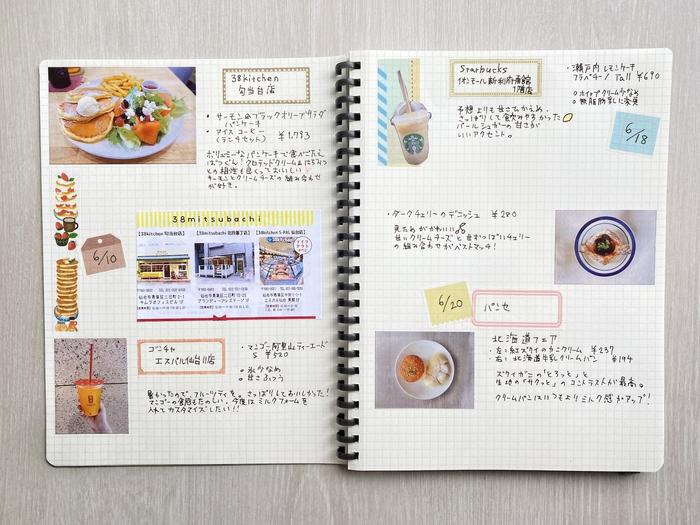 38kitchen
勾当台店
・サーモン&ブラックオリーブサラダ
パンケーキ
・アイスコーヒー
(ランチセット) ¥1,793
ボリューミーなパンケーキで食べごたえ
ばつぐん!クロテッドクリーム&はちみつ
との相性も良くっておいしい
サーモンとクリームチーズの組み合わせ
が好き。
6/10
38mitsubachi
【38kitchen 勾当台店】
【38mitsubachi 北四番丁店】
【38kitchen S-PAL 仙台店】
仙台市青葉区二日町2-1
仙台市青葉区二日町13-25
仙台市青葉区中央1-1-1
エスパル仙台 東館 2F
ゴンチャ
エスパル仙台店
・マンゴー阿里山ティーエード
S ¥520
氷少なめ
甘さふつう
暑かったので、フルーツティーを。さっぱりしておいしかった!
マンゴーの食感もたのしい。今度はミルクフォームを
入れてカスタマイズしたい!!
Starbucks
イオンモール新利府南館
1階店
・瀬戸内レモンケーキ
フラペチーノ Tall ¥690
ホイップクリーム少なめ
無脂肪乳に変更
予想よりも甘さひかえめ。
さっぱりして飲みやすかった
パールシュガーの甘さが
いいアクセント。
6/18
・ダークチェリーのデニッシュ ¥280
見ためがかわいい
甘いクリームチーズと甘ずっぱいチェリー
の組み合わせがベストマッチ!
6/20
パンセ
北海道フェア
・左:紅ズワイのカニクリーム ¥237
・右:北海道牛乳クリームパン ¥194
ズワイガニの「とろっ」と
生地の「サクッ」のコントラストが最高。
クリームパンはいつもよりミルク感がアップ!